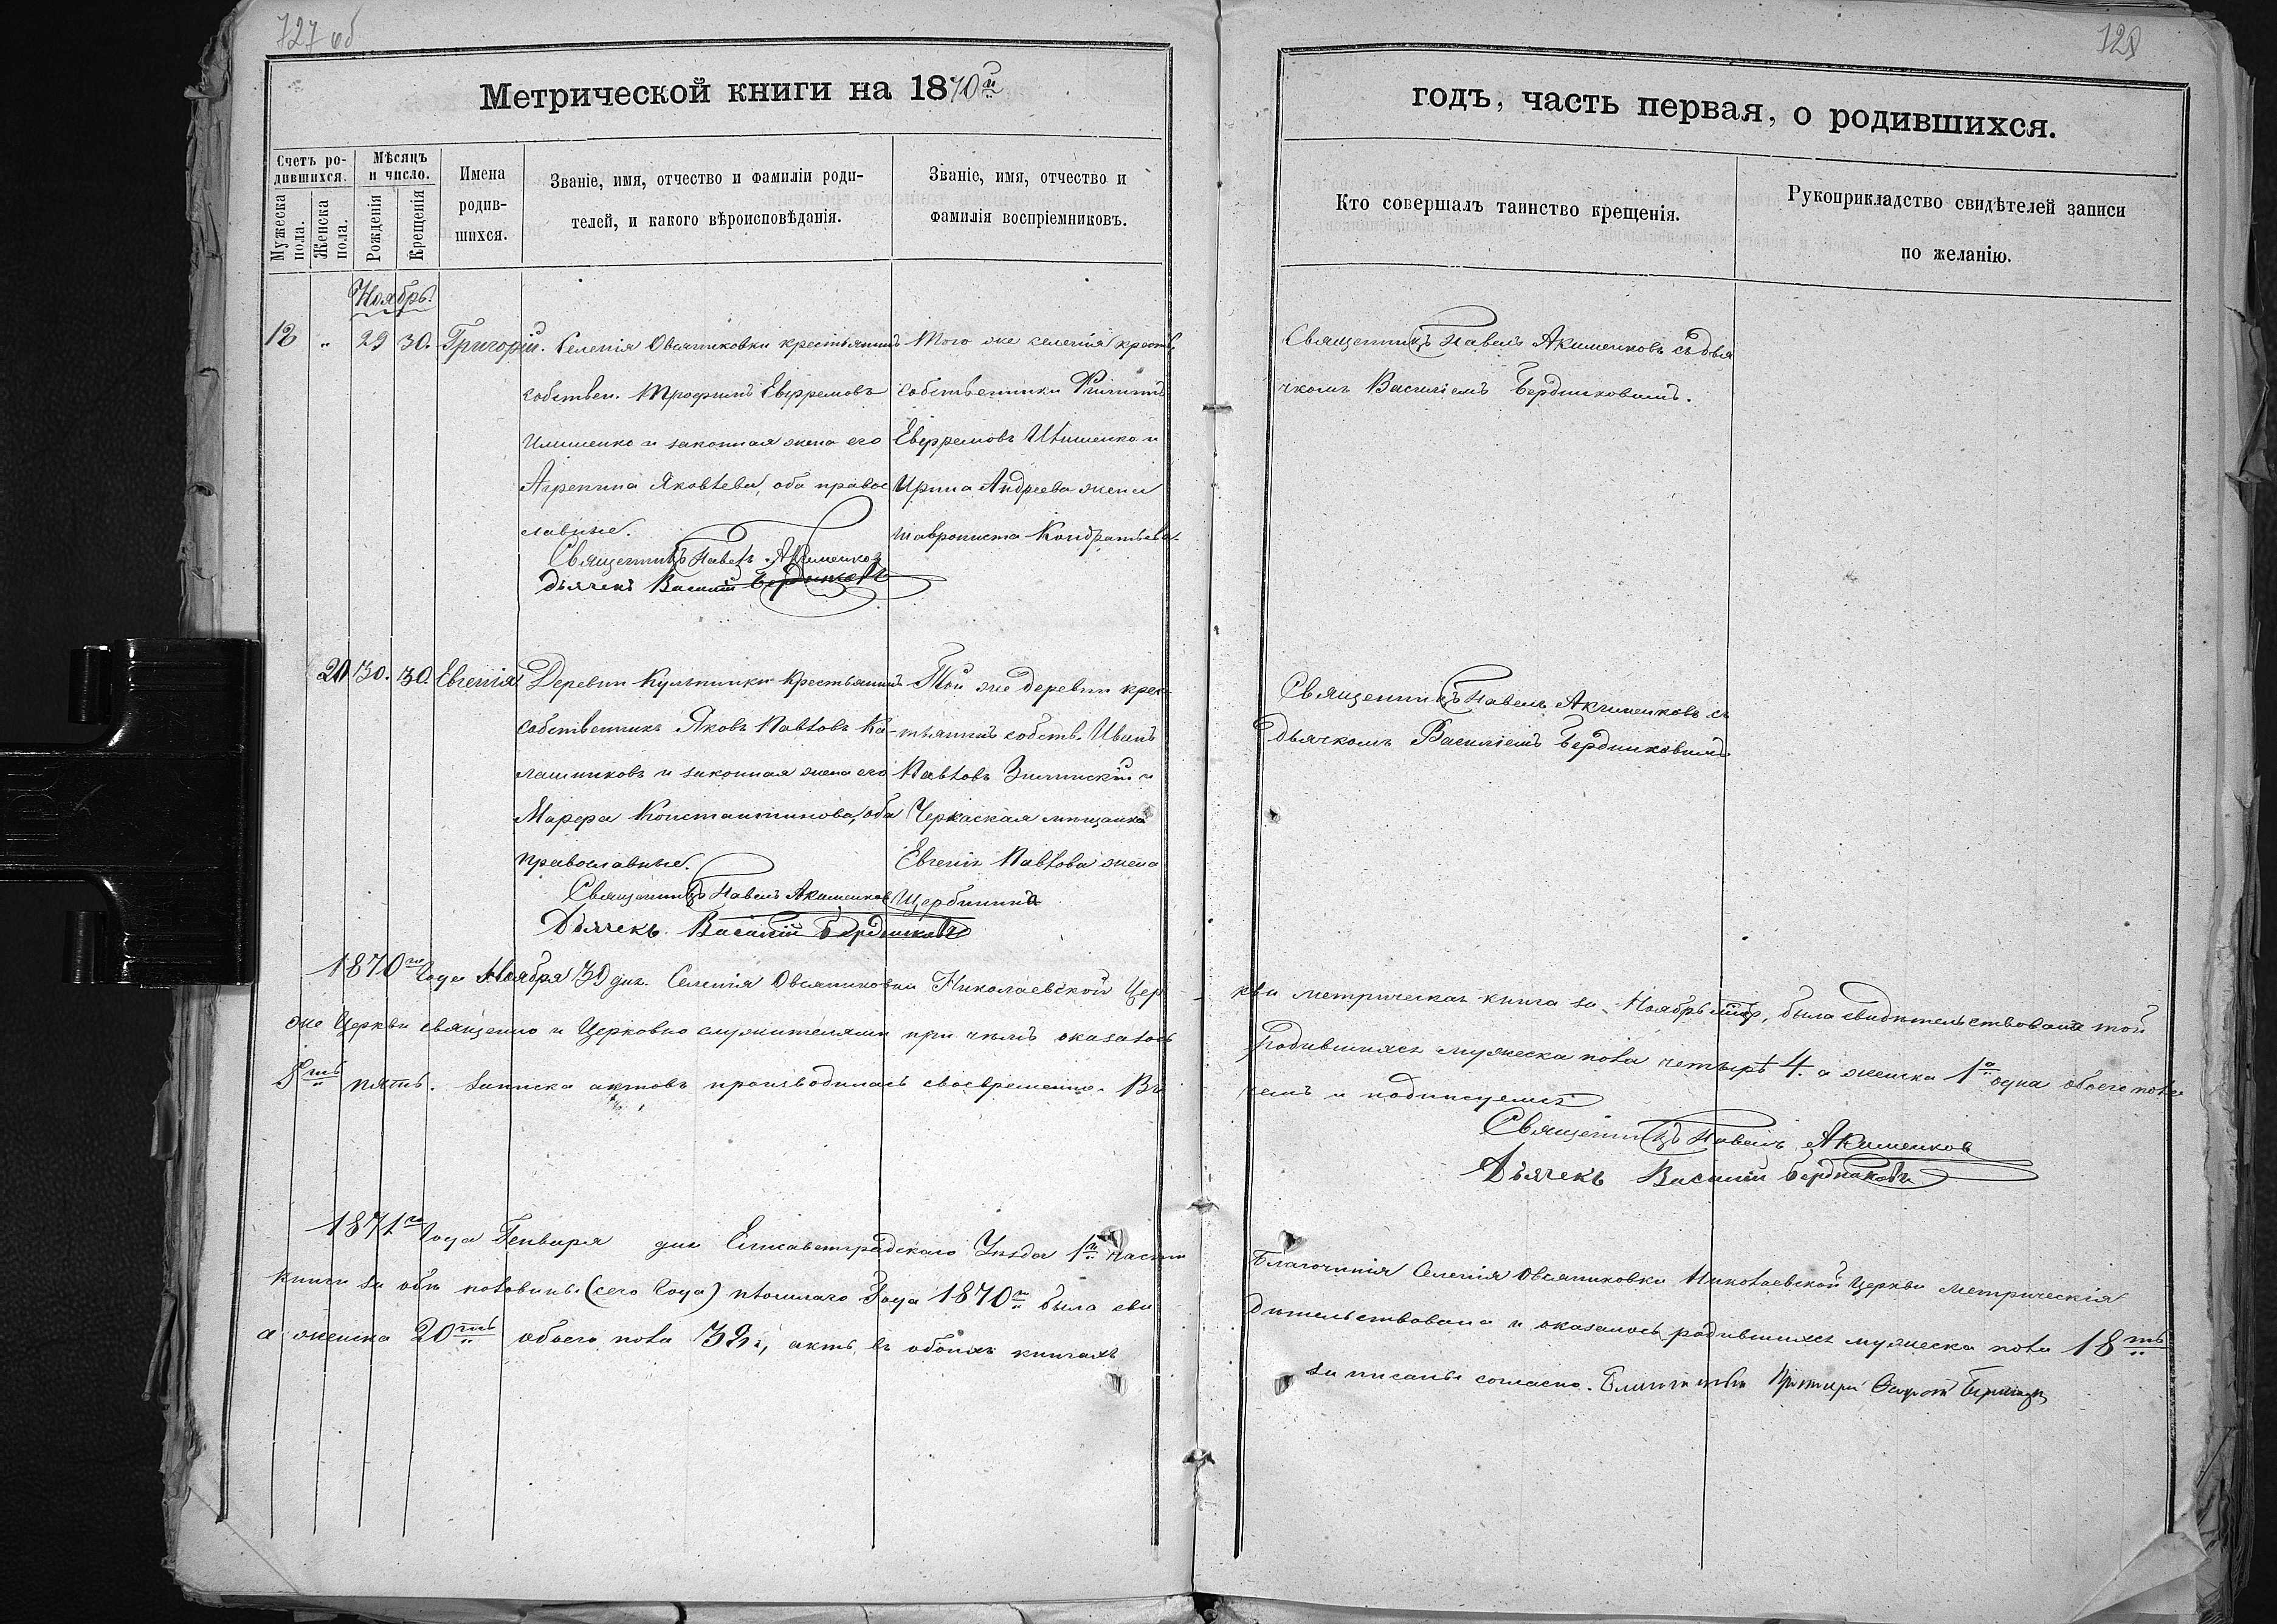 727 об
128
Метрической книги на 1870й
годъ, часть первая, о родившихся.
Счетъ ро-
дившихся.
Мужеска
пола.
Женска
пола.
Мѣсяцъ
и число.
Рожденія
Крещенія
Имена
родив-
шихся.
Званіе, имя, отчество и фамиліи роди-
телей, и какого вѣроисповѣданія.
Званіе, имя, отчество и
фамилія воспріемниковъ.
Кто совершалъ таинство крещенія.
Рукоприкладство свидѣтелей записи
по желанію.
Ноябрь
18 " 29 30. Григорій.
Селенія Овсяниковки крестьянинъ
собствен. Трофимъ Евфремовъ
и законная жена его
Агрепина Яковлева, оба право
славные.
Священникъ Павелъ Акименков
Дьячекъ Василій Бердниковъ
Того же селенія крестья
собственники Филиппъ
Евфремовъ и
Ирина Андреева жена
Кондратьева
Священникъ Павелъ Акименковъ съ дья
чкомъ Василіемъ Бердниковимъ.
20 30. 30. Евгенія
Деревни крестьянинъ
собственникъ Яковъ Павловъ Ка-
лашниковъ и законная жена его
Марфа Константинова, оба
православные.
Священникъ Павелъ Акименков
Дьячекъ Василій Бердниковъ
Той же деревни крес
тьянинъ собств. Иванъ
Павловъ и
Черкаская мѣщанка
Евгенія Павлова жена
Щербинина
Священникъ Павелъ Акименковъ съ
Дьячкомъ Василіемъ Бердниковимъ
1870го Года Ноября 30 дня. Селенія Овсяниковки Николаевской Цер
кви метрическая книга за Ноябрь была свидѣтельствована той
же Церкви священно и Церковно служителями при чемъ оказалось
родившихся мужеска пола четырѣ 4. а женска 1а одна обоего пола
5ть пять. Записка актовъ производилась своевременно. Въ
чемъ и подписуемся
Священникъ Павелъ Акименков
Дьячекъ Василій Бердниковъ
1871го Года Генваря дня Елисаветградскаго Уѣзда 1й части
Благочинія Селенія Овсяниковки Николаевской Церкви Метрическія
книги за обѣ половины (сего Года) прошлаго Года 1870го была сви
дительствована и оказалось родившихся мужеска пола 18ть
а женска 20ть обоего пола 38, актъ въ обоихъ книгахъ
записаны согласно.